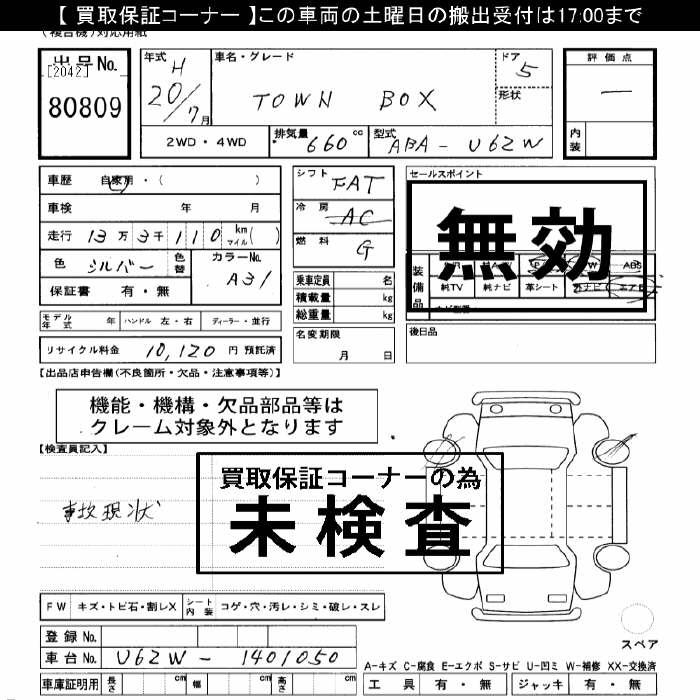 【 買取保証コーナー 】この車両の土曜日の搬出受付は17:00まで
(複合機)対応用紙
出品No.
[2042]
80809
年式
H
20/7月
車名・グレード
TOWN BOX
ドア
5
形状
2WD・4WD
排気量
660 cc
型式
ABA-U62W
評価点
—
内装
車歴 自家用・( )
車検 年 月
走行 13万3千110 km マイル( )
色 シルバー 色替
カラーNo.
A31
保証書 有・無
モデル年式 年 ハンドル 左・右 ディーラー・並行
リサイクル料金 10,120 円 預託済
シフト FAT
冷房 AC
燃料 G
乗車定員 名
積載量 kg
総重量 kg
名変期限
月 日
セールスポイント
無効
装備品
W ABS
純TV 純ナビ 革シート 社外ナビ エアB
後日品
【出品店申告欄(不良箇所・欠品・注意事項等)】
機能・機構・欠品部品等は
クレーム対象外となります
【検査員記入】
事故現状
買取保証コーナーの為
未検査
FW キズ・トビ石・割レX シート内装 コゲ・穴・汚レ・シミ・破レ・スレ
登録No.
車台No. U62W-1401050
車庫証明用 長さ cm 幅 cm 高さ cm
スペア
A-キズ C-腐食 E-エクボ S-サビ U-凹ミ W-補修 XX-交換済
工具 有・無 ジャッキ 有・無